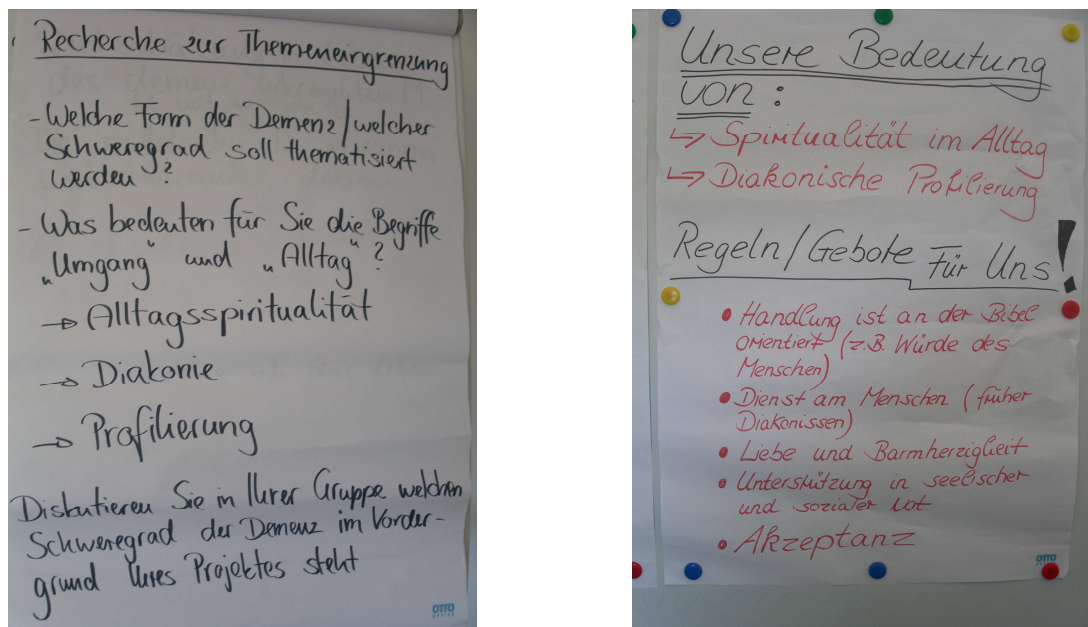 Recherche zur Themeneingrenzung
- Welche Form der Demenz/welcher
Schweregrad soll thematisiert
werden?
- Was bedeuten für Sie die Begriffe
„Umgang" und „Alltag"?
→ Alltagsspiritualität
→ Diakonie
→ Profilierung
Diskutieren Sie in Ihrer Gruppe welchen
Schweregrad der Demenz im Vorder-
grund Ihres Projektes steht
OTTO
OFFICE
Unsere Bedeutung
von:
↳ Spiritualität im Alltag
↳ Diakonische Profilierung
Regeln/Gebote Für Uns!
• Handlung ist an der Bibel
orientiert (z.B. Würde des
Menschen)
• Dienst am Menschen (früher
Diakonissen)
• Liebe und Barmherzigkeit
• Unterstützung in seelischer
und sozialer Not
• Akzeptanz
OTTO
OFFICE